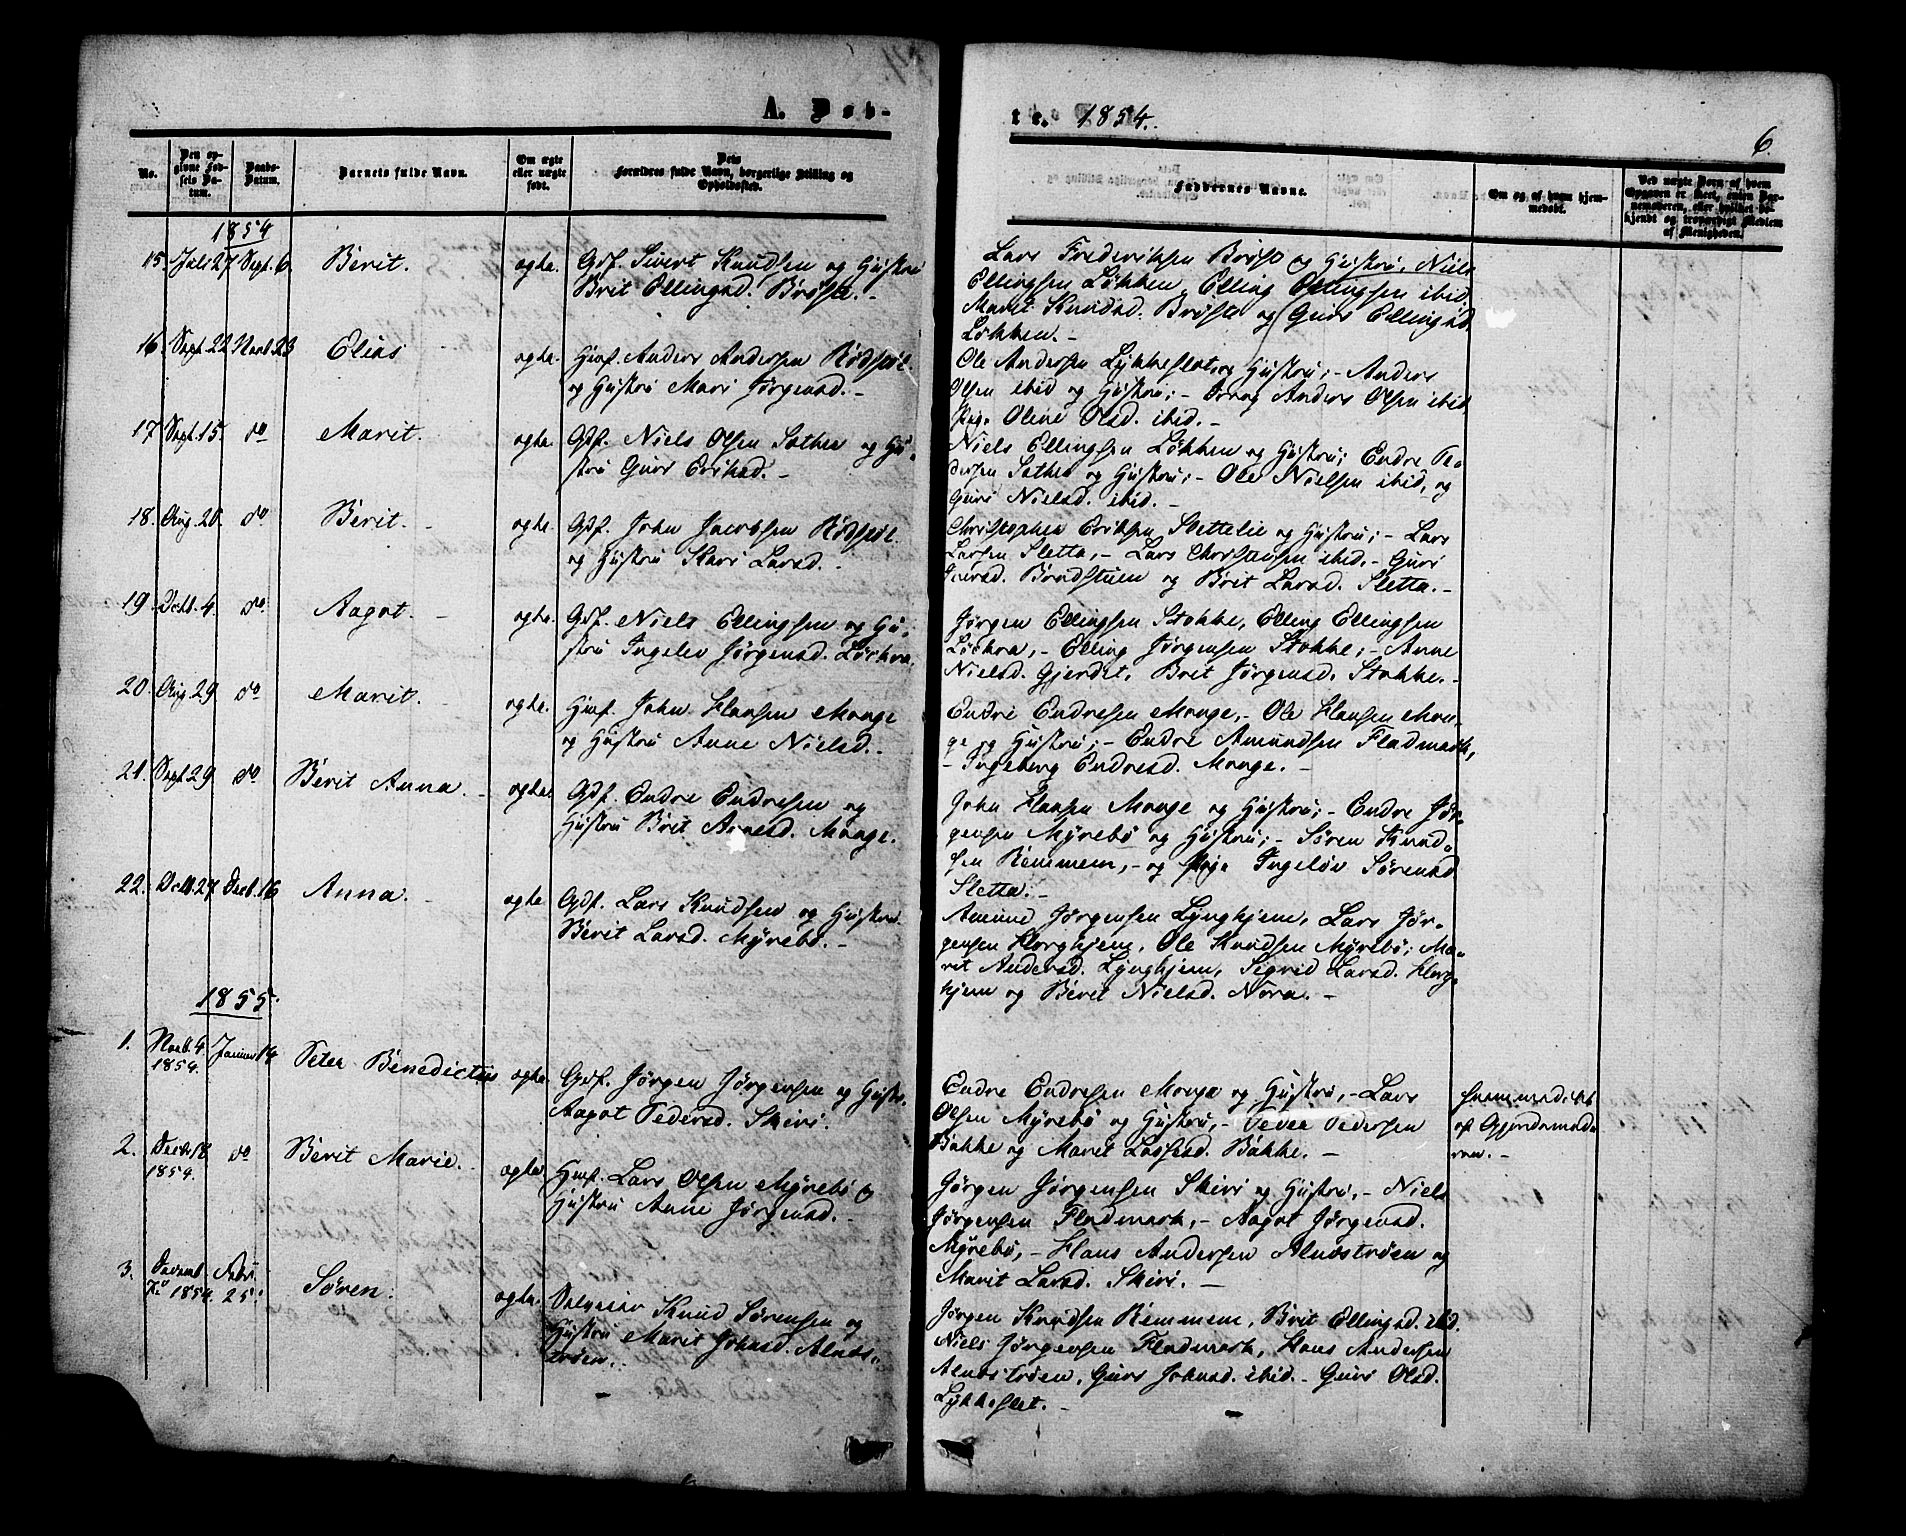 A. Døb-
No.
Den op-
givne Fød-
sels Da-
tum.
Daabs-
Datum.
Barnets fulde Navn.
Om ægte
eller uægte
født.
Dets
Forældres fulde Navn, borgerlige Stilling og
Opholdssted.
1854
15. Juli 27 Sept. 6. Berit. ægte. Gdf. Sivert Knudsen og Hustru
Brit Ellingsd. Brøste. -
16. Sept. 22 Novb. 23 Elias ægte. Hmf. Anders Andersen Rødsæt.
og Hustru Mari Jørgensd. -
17 Sept. 15. do Marit. ægte. Gdf. Niels Olsen Sæther og Hu-
stru Guri Eriksd. -
18. Aug. 20. do Berit. - ægte. Gdf. John Jacobsen Rødsæt.
og Hustru Kari Larsd. -
19. Octb. 4. do Aagot. - ægte. Gdf. Niels Ellingsen og Hu-
stru Ingelev Jørgensd. Løckra.
20. Aug. 29. do Marit. ægte. Hmf. John Hansen Monge
og Hustru Anne Nielsd. -
21. Sept. 29 do Berit Anna. - ægte. Gdf. Endre Endresen og
Hustru Brit Arnesd. Monge.
22. Octb. 27 Decb. 16 Anna. - ægte. Gdf. Lars Knudsen og Hustru
Berit Larsd. Myrebø. -
1855.
1. Novb. 4 1854. Januar 14 Peter Benedictus ægte. Gdf. Jørgen Jørgensen og Hustr.
Aagot Pedersd. Skiri.
2. Decb. 18 1854. do Berit Marie. - ægte Hmf. Lars Olsen Myrebø og
Hustru Anne Jørgensd. -
3. Decemb. 1854. Febr. 25. Søren. ægte. Knud Sørensen og
Hustru Marit Johnsd. Alnæs-
trøen. -
te. 1854.
6.
Faddernes Navne.
Om og af hvem hjem-
medøbt.
Ved uægte Børn af hvem
Opgaven er skeet, enten Bar-
nemoderen, eller hvilket be-
kjendt og troværdigt Medlem
af Menigheden.
Lars Frederiksen Brøste og Hustru, Niels
Ellingsen Løkken, Elling Ellingsen ibid.
Marit Knudsd. Brøste og Guri Ellingsd.
Løkken. -
Ole Andersen Lykkeslet, og Hustru; - Anders
Olsen ibid og Hustru; - Anders Olsen ibid
Pig. Oline Olsd. ibid. -
Niels Ellingsen Løkken og Hustru; Endre Pe-
dersen Sæther og Hustru; - Ole Nielsen ibid, og
Guri Nielsd. ibid. -
Christopher Eriksen Slettelie og Hustru; - Lars
Larsen Sletta, - Lars Christensen ibid. - Guri
Iversd. Brudstuen og Brit Larsd. Sletta. -
Jørgen Ellingsen Stokke, Elling Ellingsen
Løckra, - Elling Jørgensen Stokke, - Anne
Nielsd. Gjerdet, Brit Jørgensd. Stokke. -
Endre Endresen Monge, - Ole Hansen Mon-
ge og Hustru; - Endre Amundsen Fladmark,
- Ingeborg Endresd. Monge. -
John Hansen Monge og Hustru; - Endre Jør-
gensen Myrebø og Hustru; - Søren Knud-
sen Remmem, - og Pige Ingeløv Sørensd
Sletta. -
Amund Jørgensen Lynghjem, Lars Jør-
gensen Horghjem, Ole Knudsen Myrebø; Ma-
rit Andersd. Lynghjem, Sigrid Larsd. Horg-
hjem og Berit Nielsd. Nora. -
Endre Endresen Monge og Hustru, - Lars
Olsen Myrebø og Hustru, - Peder Pedersen
Bakke og Marit Lassesd. Bakke. -
hjemmedøbt
af Gjordemode
ren. -
Jørgen Jørgensen Skiri og Hustru, - Niels
Jørgensen Fladmark, - Aagot Jørgensd.
Myrebø, - Hans Andersen Alnæstrøen og
Marit Larsd. Skiri. -
Jørgen Knudsen Remmem, Brit Ellingsd. ibid.
Niels Jørgensen Fladmark, Hans Andersen
Alnæstrøen, Guri Johnsd. ibid. - Guri Olsd.
Lykkeslet. -